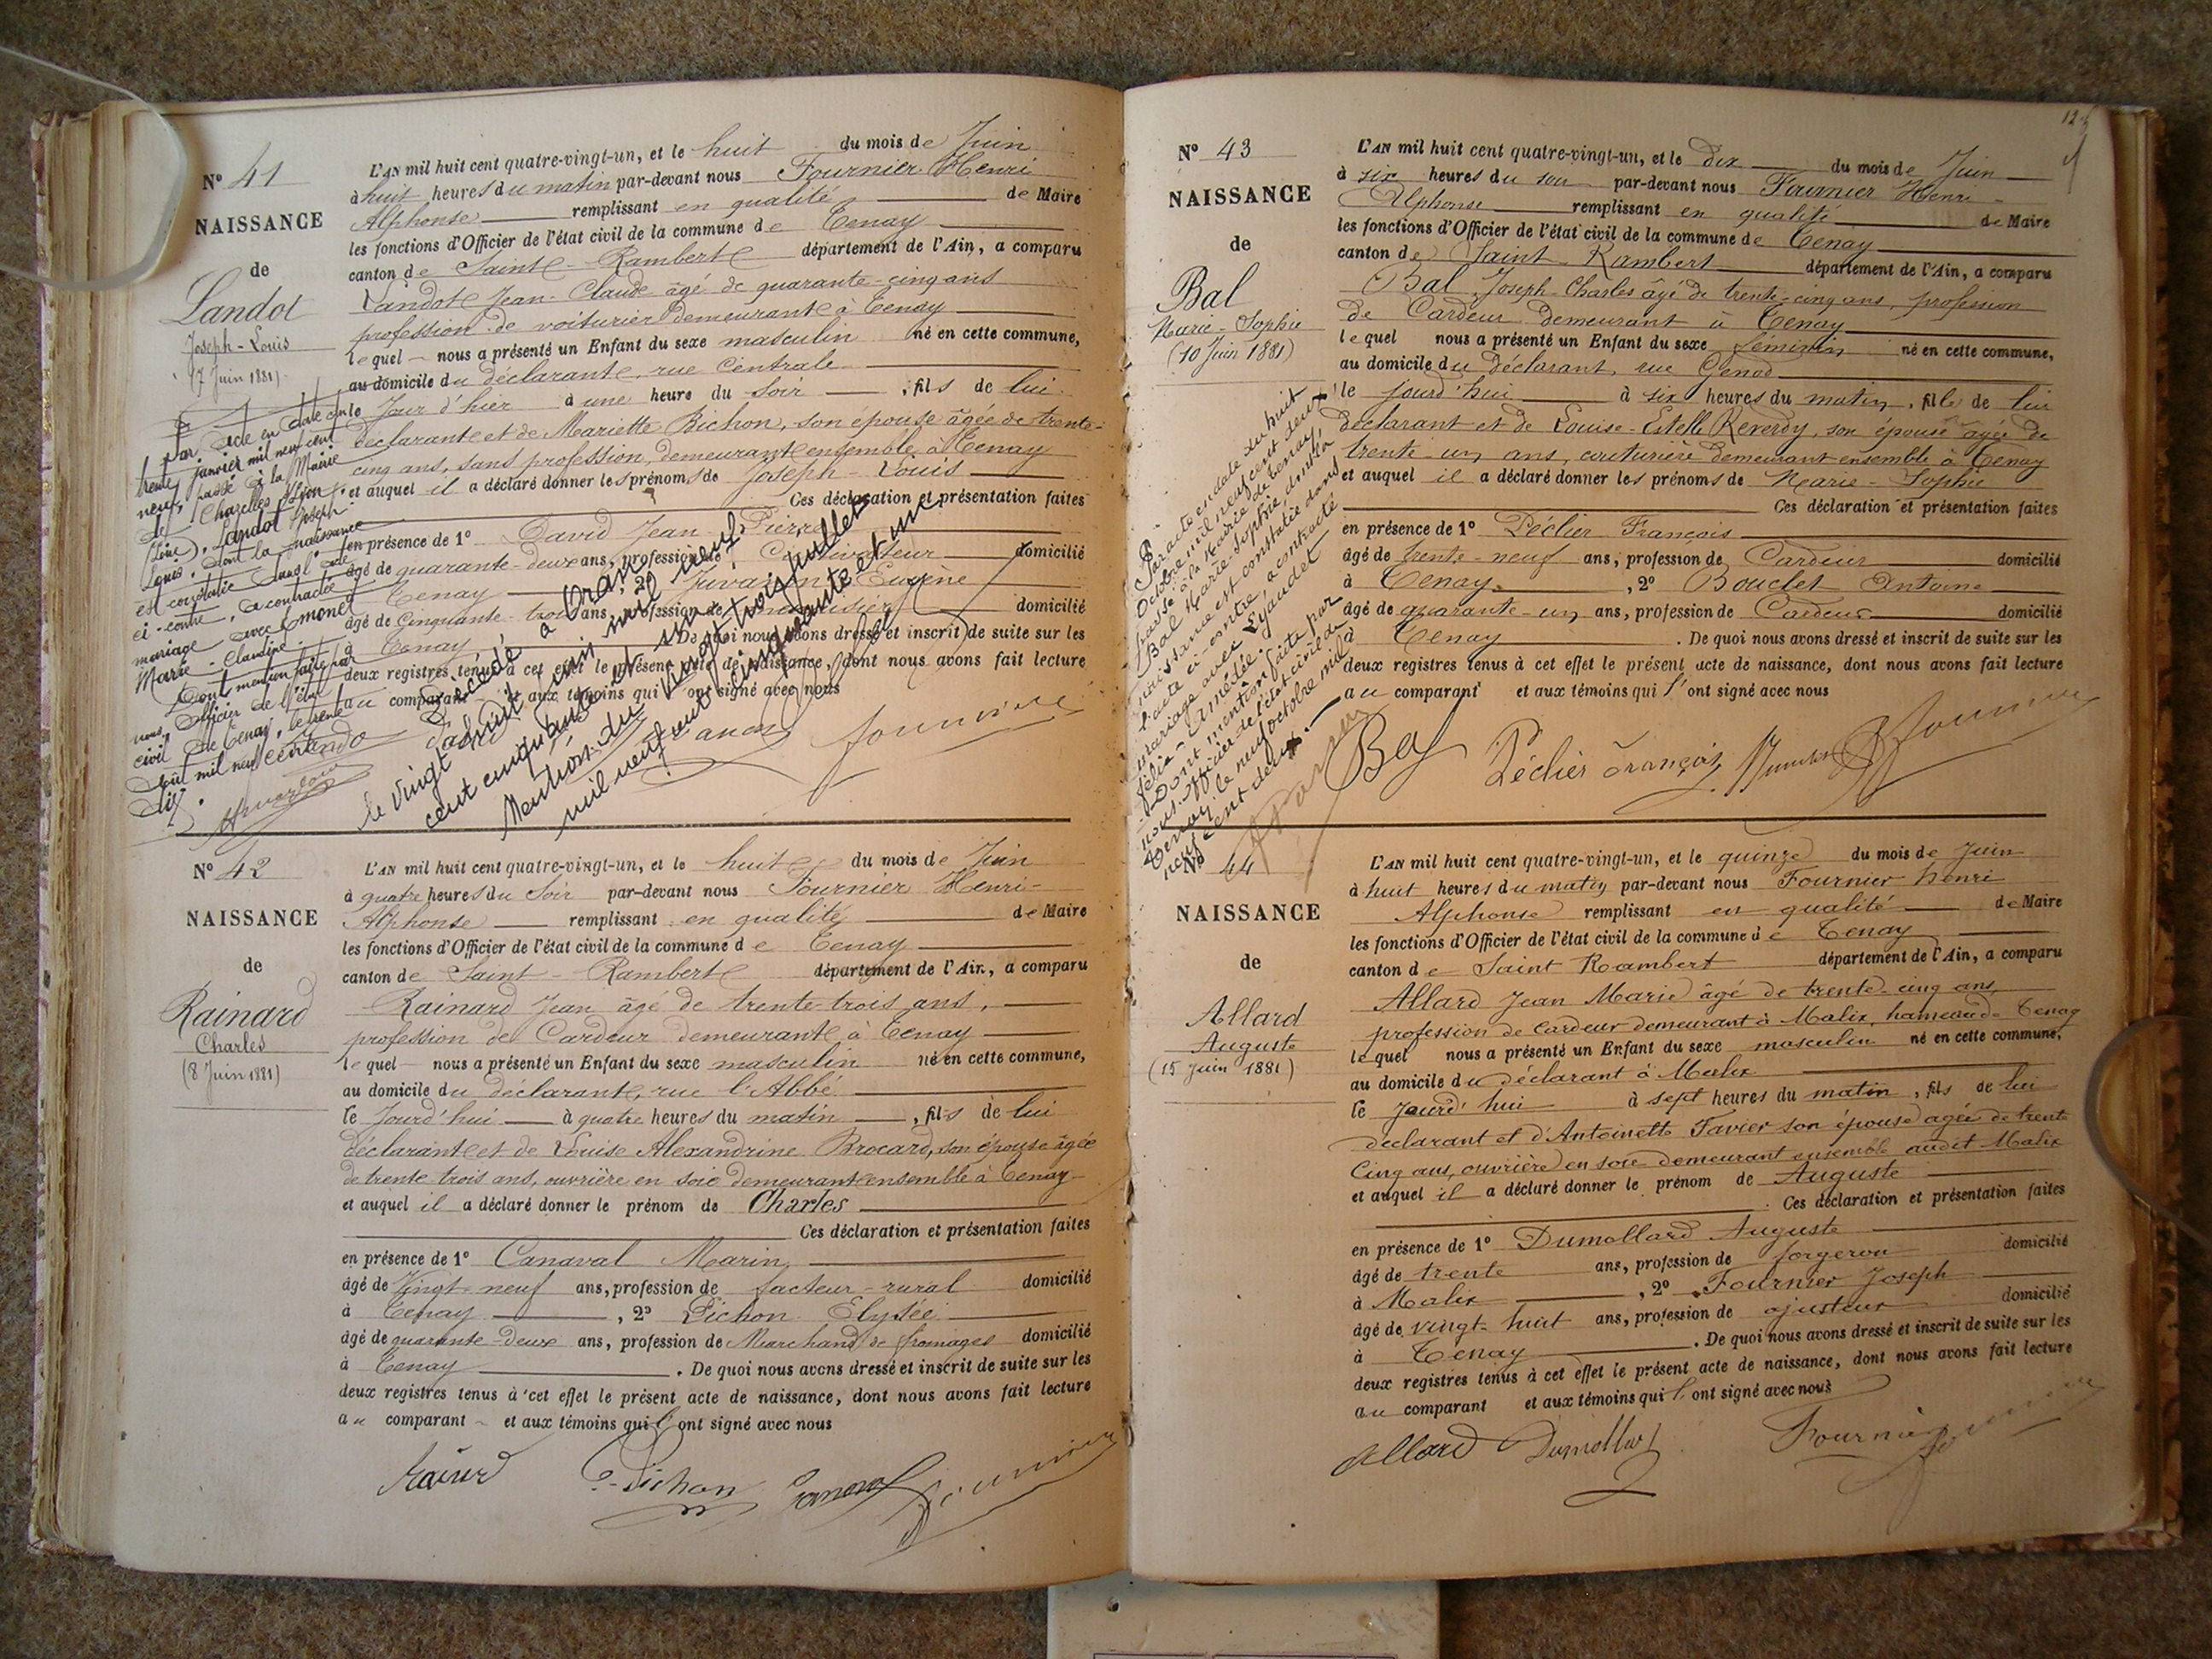 N° 41
NAISSANCE
de
Landot
Joseph-Louis
(7 Juin 1881)
L'AN mil huit cent quatre-vingt-un, et le huit du mois de Juin
à huit heures du matin par-devant nous Fournier Henri
Alphonse remplissant en qualité de Maire
les fonctions d'Officier de l'état civil de la commune de Tenay
canton de Saint-Rambert département de l'Ain, a comparu
Landot Jean-Claude âgé de quarante-cinq ans
profession de voiturier demeurant à Tenay
lequel nous a présenté un Enfant du sexe masculin né en cette commune,
au domicile du déclarant, rue Centrale
le Jour d'hier à une heure du soir, fils de lui
déclarant et de Mariette Bichon, son épouse âgée de trente-
cinq ans, sans profession, demeurant ensemble à Tenay
et auquel il a déclaré donner les prénoms de Joseph-Louis
Ces déclaration et présentation faites
en présence de 1° David Jean Pierre
âgé de quarante-deux ans, profession de Cultivateur domicilié
à Tenay, 2° Juvanon Eugène
âgé de Cinquante-trois ans, profession de menuisier domicilié
à Tenay. De quoi nous avons dressé et inscrit de suite sur les
deux registres tenus à cet effet le présent acte de naissance, dont nous avons fait lecture
au comparant et aux témoins qui ont signé avec nous
Par acte en date du
trente janvier mil neuf cent
neuf, passé à la Mairie
de Chazelles s/Lyon
(Loire), Landot Joseph
Louis, dont la naissance
est constatée dans l'acte
ci-contre, a contracté
mariage avec Monet
Marie-Claudine
Dont mention faite par
nous, officier de l'état
civil de Tenay, le trente
août mil neuf cent
dix.
Décédé à Oran
le vingt huit juin mil neuf
cent cinquante et un
Mention du vingt trois juillet
mil neuf cent cinquante et un
Fournier
N° 42
NAISSANCE
de
Rainard
Charles
(8 Juin 1881)
L'AN mil huit cent quatre-vingt-un, et le huit du mois de Juin
à quatre heures du Soir par-devant nous Fournier Henri-
Alphonse remplissant en qualité de Maire
les fonctions d'Officier de l'état civil de la commune de Tenay
canton de Saint-Rambert département de l'Ain, a comparu
Rainard Jean âgé de trente-trois ans,
profession de Cardeur demeurant à Tenay
lequel nous a présenté un Enfant du sexe masculin né en cette commune,
au domicile du déclarant, rue l'Abbé
le Jourd'hui à quatre heures du matin, fils de lui
déclarant et de Louise Alexandrine Brocard, son épouse âgée
de trente trois ans, ouvrière en soie demeurant ensemble à Tenay
et auquel il a déclaré donner le prénom de Charles
Ces déclaration et présentation faites
en présence de 1° Canaval Marin
âgé de Vingt-neuf ans, profession de facteur-rural domicilié
à Tenay, 2° Pichon Elysée
âgé de quarante-deux ans, profession de Marchand de fromages domicilié
à Tenay. De quoi nous avons dressé et inscrit de suite sur les
deux registres tenus à cet effet le présent acte de naissance, dont nous avons fait lecture
au comparant et aux témoins qui l'ont signé avec nous
Pichon
N° 43
NAISSANCE
de
Bal
Marie-Sophie
(10 Juin 1881)
L'AN mil huit cent quatre-vingt-un, et le Dix du mois de Juin
à six heures du soir par-devant nous Fournier Henri
Alphonse remplissant en qualité de Maire
les fonctions d'Officier de l'état civil de la commune de Tenay
canton de Saint-Rambert département de l'Ain, a comparu
Bal Joseph-Charles âgé de trente-cinq ans, profession
de Cardeur demeurant à Tenay
lequel nous a présenté un Enfant du sexe féminin né en cette commune,
au domicile du déclarant, rue Genod
le jourd'hui à six heures du matin, fille de lui
déclarant et de Louise-Estelle Reverdy, son épouse âgée de
trente-un ans, couturière demeurant ensemble à Tenay
et auquel il a déclaré donner les prénoms de Marie-Sophie
Ces déclaration et présentation faites
en présence de 1° Péclier François
âgé de trente-neuf ans, profession de Cardeur domicilié
à Tenay, 2° Bouclet Antoine
âgé de quarante-un ans, profession de Cardeur domicilié
à Tenay. De quoi nous avons dressé et inscrit de suite sur les
deux registres tenus à cet effet le présent acte de naissance, dont nous avons fait lecture
au comparant et aux témoins qui l'ont signé avec nous
Par acte en date du huit
Octobre mil neuf cent deux
passé à la Mairie de Tenay
Bal Marie Sophie, dont la
naissance est constatée dans
l'acte ci-contre, a contracté
mariage avec Lyaudet
Félix-Amédée.
Dont mention faite par
nous officier de l'état civil de
Tenay, le neuf octobre mil
neuf cent deux.
Bal Péclier François Fournier
N° 44
NAISSANCE
de
Allard
Auguste
(15 Juin 1881)
L'AN mil huit cent quatre-vingt-un, et le quinze du mois de Juin
à huit heures du matin par-devant nous Fournier henri
Alphonse remplissant en qualité de Maire
les fonctions d'Officier de l'état civil de la commune de Tenay
canton de Saint Rambert département de l'Ain, a comparu
Allard Jean Marie âgé de trente-cinq ans
profession de Cardeur demeurant à Malix, hameau de Tenay
lequel nous a présenté un Enfant du sexe masculin né en cette commune,
au domicile du déclarant à Malix
le jourd'hui à sept heures du matin, fils de lui
déclarant et d'Antoinette Favier son épouse agée de trente
Cinq ans, ouvrière en soie demeurant ensemble audit Malix
et auquel il a déclaré donner le prénom de Auguste
Ces déclaration et présentation faites
en présence de 1° Dumollard Auguste
âgé de trente ans, profession de forgeron domicilié
à Malix, 2° Fournier Joseph
âgé de vingt-huit ans, profession de ajusteur domicilié
à Tenay. De quoi nous avons dressé et inscrit de suite sur les
deux registres tenus à cet effet le présent acte de naissance, dont nous avons fait lecture
au comparant et aux témoins qui l'ont signé avec nous
Allard Dumollard Fournier